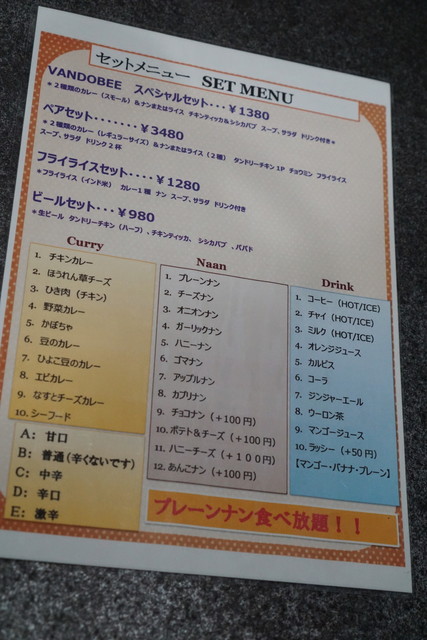 セットメニュー SET MENU
VANDOBEE スペシャルセット・・・￥1380
＊２種類のカレー（スモール）＆ナンまたはライス チキンティッカ＆シシカバブ スープ、サラダ ドリンク付き＊
ペアセット・・・・・・・￥3480
＊２種類のカレー（レギュラーサイズ）＆ナンまたはライス（２種） タンドリーチキン１P チョウミン フライライス
スープ、サラダ ドリンク２杯
フライライスセット・・・・￥1280
＊フライライス（インド米） カレー１種 ナン スープ、サラダ ドリンク付き
ビールセット・・・￥980
＊生ビール タンドリーチキン（ハーフ）、チキンティッカ、 シシカバブ 、パパド
Curry
1. チキンカレー
2. ほうれん草チーズ
3. ひき肉（チキン）
4. 野菜カレー
5. かぼちゃ
6. 豆のカレー
7. ひよこ豆のカレー
8. エビカレー
9. なすとチーズカレー
10. シーフード
A： 甘口
B： 普通（辛くないです）
C： 中辛
D： 辛口
E： 激辛
Naan
1. プレーンナン
2. チーズナン
3. オニオンナン
4. ガーリックナン
5. ハニーナン
6. ゴマナン
7. アップルナン
8. カブリナン
9. チョコナン（＋100 円）
10. ポテト＆チーズ（＋100 円）
11. ハニーチーズ（＋１００円）
12. あんこナン（＋100 円）
Drink
1. コーヒー（HOT/ICE）
2. チャイ（HOT/ICE）
3. ミルク（HOT/ICE）
4. オレンジジュース
5. カルピス
6. コーラ
7. ジンジャーエール
8. ウーロン茶
9. マンゴージュース
10. ラッシー（＋50 円）
【マンゴー・バナナ・プレーン】
プレーンナン食べ放題！！